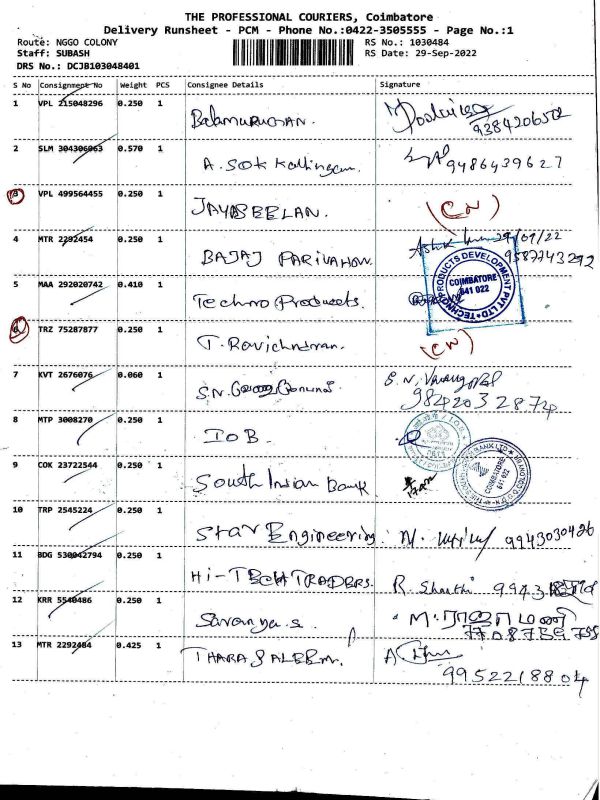 THE PROFESSIONAL COURIERS, Coimbatore
Delivery Runsheet - PCM - Phone No.:0422-3505555 - Page No.:1
Route: NGGO COLONY RS No.: 1030484
Staff: SUBASH RS Date: 29-Sep-2022
DRS No.: DCJB103048401
S No Consignment No Weight PCS Consignee Details Signature
1 VPL 215048296 0.250 1 Balamurugan. 9384206502
2 SLM 304306963 0.570 1 A. SOK Kalingam. 9486439627
3 VPL 499564455 0.250 1 JAYABEELAN. (CN)
4 MTR 2292454 0.250 1 BAJAJ PARIVAHON. 29/09/22
9587743292
5 MAA 292020742 0.410 1 Techno Products.
TECHNOPRODUCTS DEVELOPMENT PVT LTD
COIMBATORE
641 022
6 TRZ 75287877 0.250 1 T. Ravichndran. (CN)
7 KVT 2676076 0.060 1 S.N.
9842032874
8 MTP 3008270 0.250 1 IOB.
9 COK 23722544 0.250 1 South Indian Bank
COIMBATORE
641 022
10 TRP 2545224 0.250 1 Star Engineering 9943030426
11 BDG 530042794 0.250 1 Hi-TECH TRADERS. R. Shanthi
12 KRR 5540486 0.250 1 Saranya.s. M. ராஜாமணி
7708739795
13 MTR 2292484 0.425 1 THARA SALEEM.
9952218804